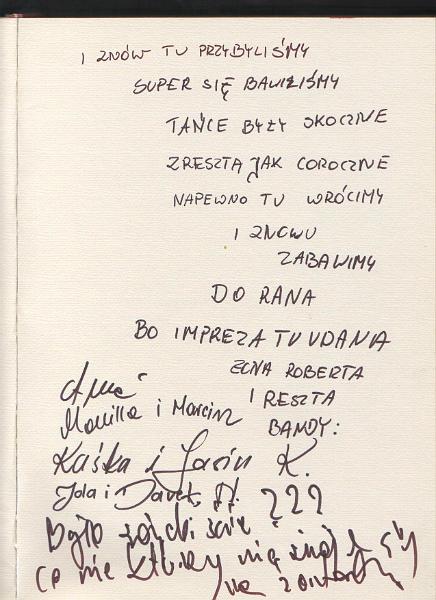 I ZNÓW TU PRZYBYLIŚMY
SUPER SIĘ BAWILIŚMY
TAŃCE BYŁY SKOCZNE
ZRESZTĄ JAK COROCZNE
NAPEWNO TU WRÓCIMY
I ZNOWU
ZABAWIMY
DO RANA
BO IMPREZA TU UDANA
ŻONA ROBERTA
I RESZTA
BANDY:
Monika i Marcin
Kaśka i Jacin K.
Jola i Darek H. ???
Było
co nie którzy nie
na